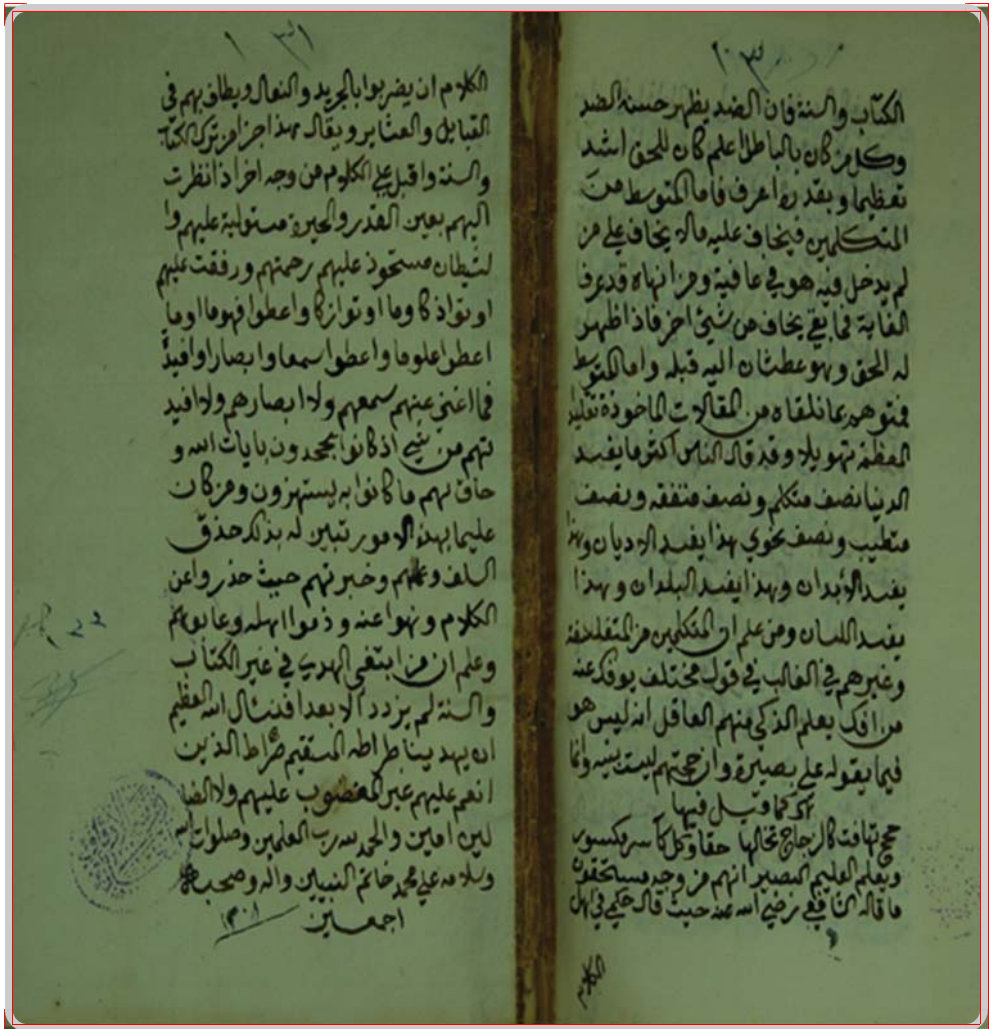 الكتاب والسنة فان الضد يظهر حسنه الضد
وكل من كان بالباطل اعلم كان للحق اشد
تعظيما وبقدره اعرف فاما المتوسط من
المتكلمين فيخاف عليه مالا يخاف على من
لم يدخل فيه هو في عافية ومن انهاه قد عرف
الغاية فما بقي يخاف من شيئ اخر فاذا ظهر
له الحق وهو عطشان اليه قبله واما المتوسط
فمتوهم بما تلقاه من المقالات الماخوذة تقليد
المعظمة تهويلا وقد قال الناس اكثر ما يفسد
الدنيا نصف متكلم ونصف متفقه ونصف
متطيب ونصف نحوي هذا يفسد الاديان وهذا
يفسد الأبدان وهذا يفسد البلدان وهذا
يفسد اللسان ومن علم ان المتكلمين من المتفلسفة
وغيرهم في الغالب في قول مختلف يوفك عنه
من افك يعلم الذكي منهم العاقل انه ليس هو
فيما يقوله على بصيرة وان حجتهم ليست بينة وانما
كما قيل فيها
حجج تهافت كالزجاج تخالها حقا وكل كاسر مكسور
ويعلم العليم البصير انهم من وجه مستحقون
ما قاله الشافعي رضي الله عنه حيث قال حكمي في اهل
الكلام
١٣١
الكلام ان يضربوا بالجريد والنعال ويطاف بهم في
القبايل والعشاير ويقال هذا جزا من ترك الكتاب
والسنة واقبل على الكلام من وجه اخر اذا نظرت
اليهم بعين القدر والحيرة مستولية عليهم وا
لشيطان مستحوذ عليهم رحمتهم ورفقت عليهم
اوتوا ذكا وما اوتوا زكا واعطوا فهوما وما
اعطوا علوما واعطوا سمعا وابصارا وافيدة
فما اغنى عنهم سمعهم ولا ابصارهم ولا افيد
تهم من شيي اذ كانوا يجحدون بايات الله و
حاق بهم ما كانوا به يستهزون ومن كان
عليما بهذه الامور تبين له بذلك حذق
السلف وعلمهم وخبرتهم حيث حذروا عن
الكلام ونهوا عنه وذموا اهله وعابوهم
وعلم ان من ابتغى الهدى في غير الكتاب
والسنة لم يزدد الا بعدا فنسال الله العظيم
ان يهدينا صراطه المستقيم صراط الذين
انعم عليهم غير المغضوب عليهم ولا الضا
لين امين والحمد لله رب العلمين وصلوات الله
وسلامه على محمد خاتم النبيين واله وصحبه
اجمعين